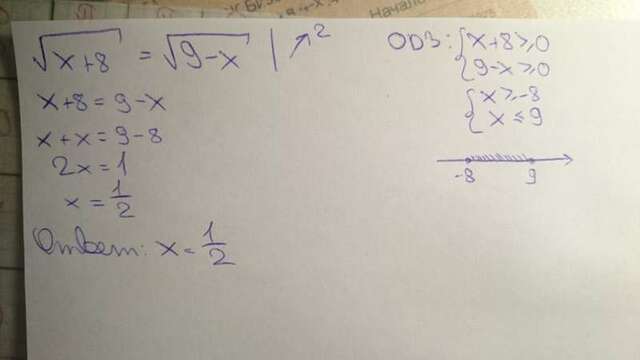 √x+8 = √9-x | ↗2
x+8 = 9-x
x+x = 9-8
2x = 1
x = 1/2
Ответ: x = 1/2
ОДЗ: {x+8≥0
{9-x≥0
{x≥-8
{x≤9
-8 9